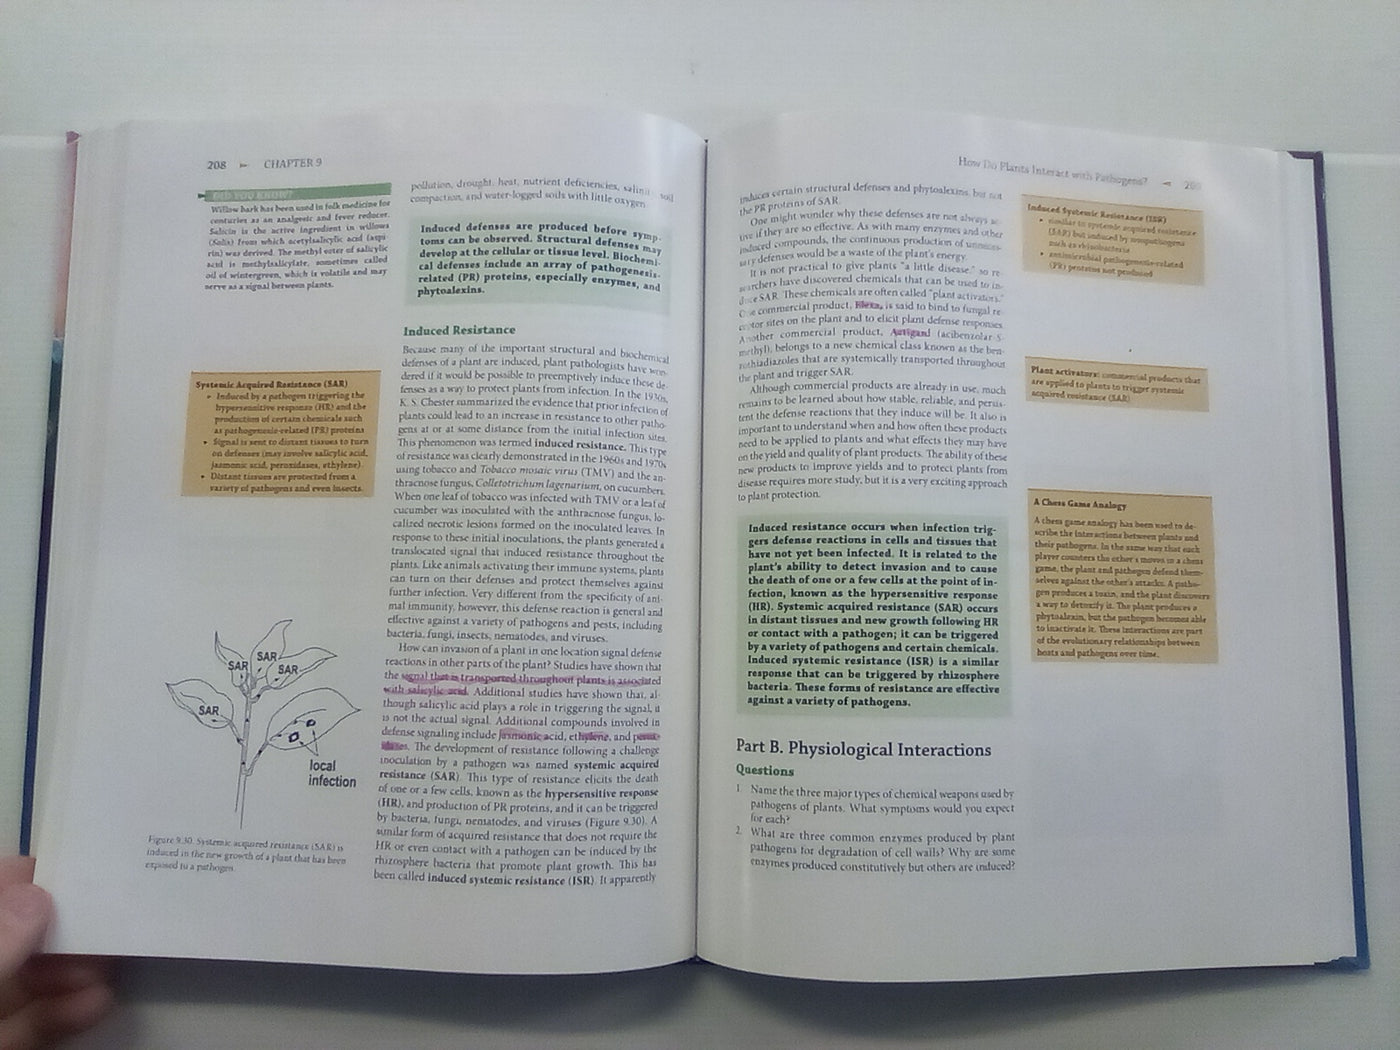 208 ► CHAPTER 9
DID YOU KNOW?
Willow bark has been used in folk medicine for
centuries as an analgesic and fever reducer.
Salicin is the active ingredient in willows
(Salix) from which acetylsalicylic acid (aspi-
rin) was derived. The methyl ester of salicylic
acid is methylsalicylate, sometimes called
oil of wintergreen, which is volatile and may
serve as a signal between plants.
Systemic Acquired Resistance (SAR)
• Induced by a pathogen triggering the
hypersensitive response (HR) and the
production of certain chemicals such
as pathogenesis-related (PR) proteins
• Signal is sent to distant tissues to turn
on defenses (may involve salicylic acid,
jasmonic acid, peroxidases, ethylene).
• Distant tissues are protected from a
variety of pathogens and even insects.
SAR
SAR
SAR
SAR
local
infection
Figure 9.30. Systemic acquired resistance (SAR) is
induced in the new growth of a plant that has been
exposed to a pathogen.
pollution, drought, heat, nutrient deficiencies, salinity, soil
compaction, and water-logged soils with little oxygen.
Induced defenses are produced before symp-
toms can be observed. Structural defenses may
develop at the cellular or tissue level. Biochemi-
cal defenses include an array of pathogenesis-
related (PR) proteins, especially enzymes, and
phytoalexins.
Induced Resistance
Because many of the important structural and biochemical
defenses of a plant are induced, plant pathologists have won-
dered if it would be possible to preemptively induce these de-
fenses as a way to protect plants from infection. In the 1930s,
K. S. Chester summarized the evidence that prior infection of
plants could lead to an increase in resistance to other patho-
gens at or at some distance from the initial infection sites.
This phenomenon was termed induced resistance. This type
of resistance was clearly demonstrated in the 1960s and 1970s
using tobacco and Tobacco mosaic virus (TMV) and the an-
thracnose fungus, Colletotrichum lagenarium, on cucumbers.
When one leaf of tobacco was infected with TMV or a leaf of
cucumber was inoculated with the anthracnose fungus, lo-
calized necrotic lesions formed on the inoculated leaves. In
response to these initial inoculations, the plants generated a
translocated signal that induced resistance throughout the
plants. Like animals activating their immune systems, plants
can turn on their defenses and protect themselves against
further infection. Very different from the specificity of ani-
mal immunity, however, this defense reaction is general and
effective against a variety of pathogens and pests, including
bacteria, fungi, insects, nematodes, and viruses.
How can invasion of a plant in one location signal defense
reactions in other parts of the plant? Studies have shown that
the signal that is transported throughout plants is associated
with salicylic acid. Additional studies have shown that, al-
though salicylic acid plays a role in triggering the signal, it
is not the actual signal. Additional compounds involved in
defense signaling include jasmonic acid, ethylene, and perox-
idases. The development of resistance following a challenge
inoculation by a pathogen was named systemic acquired
resistance (SAR). This type of resistance elicits the death
of one or a few cells, known as the hypersensitive response
(HR), and production of PR proteins, and it can be triggered
by bacteria, fungi, nematodes, and viruses (Figure 9.30). A
similar form of acquired resistance that does not require the
HR or even contact with a pathogen can be induced by the
rhizosphere bacteria that promote plant growth. This has
been called induced systemic resistance (ISR). It apparently
How Do Plants Interact with Pathogens? ◄
induces certain structural defenses and phytoalexins, but not
the PR proteins of SAR.
One might wonder why these defenses are not always ac-
tive if they are so effective. As with many enzymes and other
induced compounds, the continuous production of unneces-
sary defenses would be a waste of the plant's energy.
It is not practical to give plants "a little disease," so re-
searchers have discovered chemicals that can be used to in-
duce SAR. These chemicals are often called "plant activators."
One commercial product, Elexa, is said to bind to fungal re-
ceptor sites on the plant and to elicit plant defense responses.
Another commercial product, Actigard (acibenzolar-S-
methyl), belongs to a new chemical class known as the ben-
zothiadiazoles that are systemically transported throughout
the plant and trigger SAR.
Although commercial products are already in use, much
remains to be learned about how stable, reliable, and persis-
tent the defense reactions that they induce will be. It also is
important to understand when and how often these products
need to be applied to plants and what effects they may have
on the yield and quality of plant products. The ability of these
new products to improve yields and to protect plants from
disease requires more study, but it is a very exciting approach
to plant protection.
Induced resistance occurs when infection trig-
gers defense reactions in cells and tissues that
have not yet been infected. It is related to the
plant's ability to detect invasion and to cause
the death of one or a few cells at the point of in-
fection, known as the hypersensitive response
(HR). Systemic acquired resistance (SAR) occurs
in distant tissues and new growth following HR
or contact with a pathogen; it can be triggered
by a variety of pathogens and certain chemicals.
Induced systemic resistance (ISR) is a similar
response that can be triggered by rhizosphere
bacteria. These forms of resistance are effective
against a variety of pathogens.
Part B. Physiological Interactions
Questions
1. Name the three major types of chemical weapons used by
pathogens of plants. What symptoms would you expect
for each?
2. What are three common enzymes produced by plant
pathogens for degradation of cell walls? Why are some
enzymes produced constitutively but others are induced?
Induced Systemic Resistance (ISR)
• similar to systemic acquired resistance
(SAR) but induced by nonpathogens
such as rhizobacteria
• antimicrobial pathogenesis-related
(PR) proteins not produced
Plant activators: commercial products that
are applied to plants to trigger systemic
acquired resistance (SAR)
A Chess Game Analogy
A chess game analogy has been used to de-
scribe the interactions between plants and
their pathogens. In the same way that each
player counters the other's moves in a chess
game, the plant and pathogen defend them-
selves against the other's attacks. A patho-
gen produces a toxin, and the plant discovers
a way to detoxify it. The plant produces a
phytoalexin, but the pathogen becomes able
to inactivate it. These interactions are part
of the evolutionary relationships between
hosts and pathogens over time.